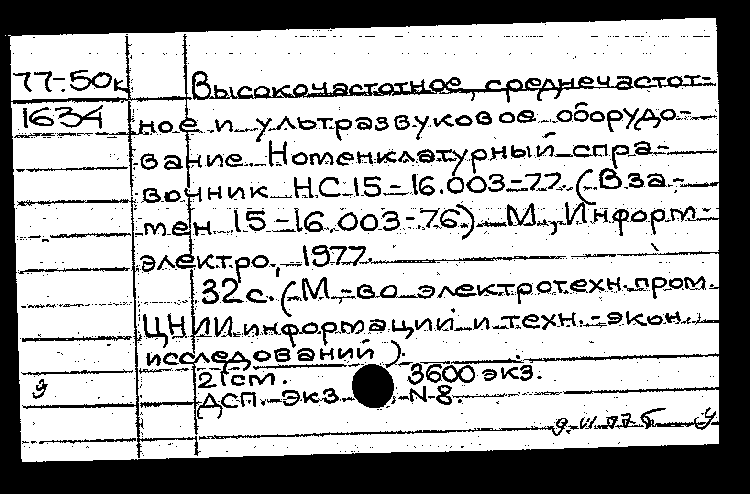 77-50к Высокочастотное, среднечастот-
1634 ное и ультразвуковое оборудо-
вание. Номенклатурный спра-
вочник НС.15-16.003-77. (Вза-
мен 15-16.003-76). М., Информ-
электро, 1977.
32 с. (М-во электротехн. пром.
ЦНИИ информации и техн.-экон.
исследований).
21 см. 3600 экз.
ДСП. Экз. N 8.
9.VI.77